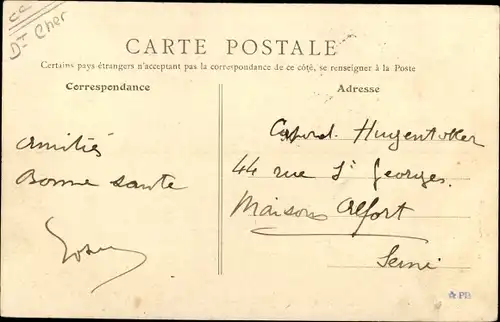 cc
Dt Cher
CARTE POSTALE
Certains pays étrangers n'acceptant pas la correspondance de ce côté, se renseigner à la Poste
Correspondance
Adresse
Amitiés
Bonne santé
Hugentobler
44 rue St Georges.
Maisons Alfort
Seine
PB